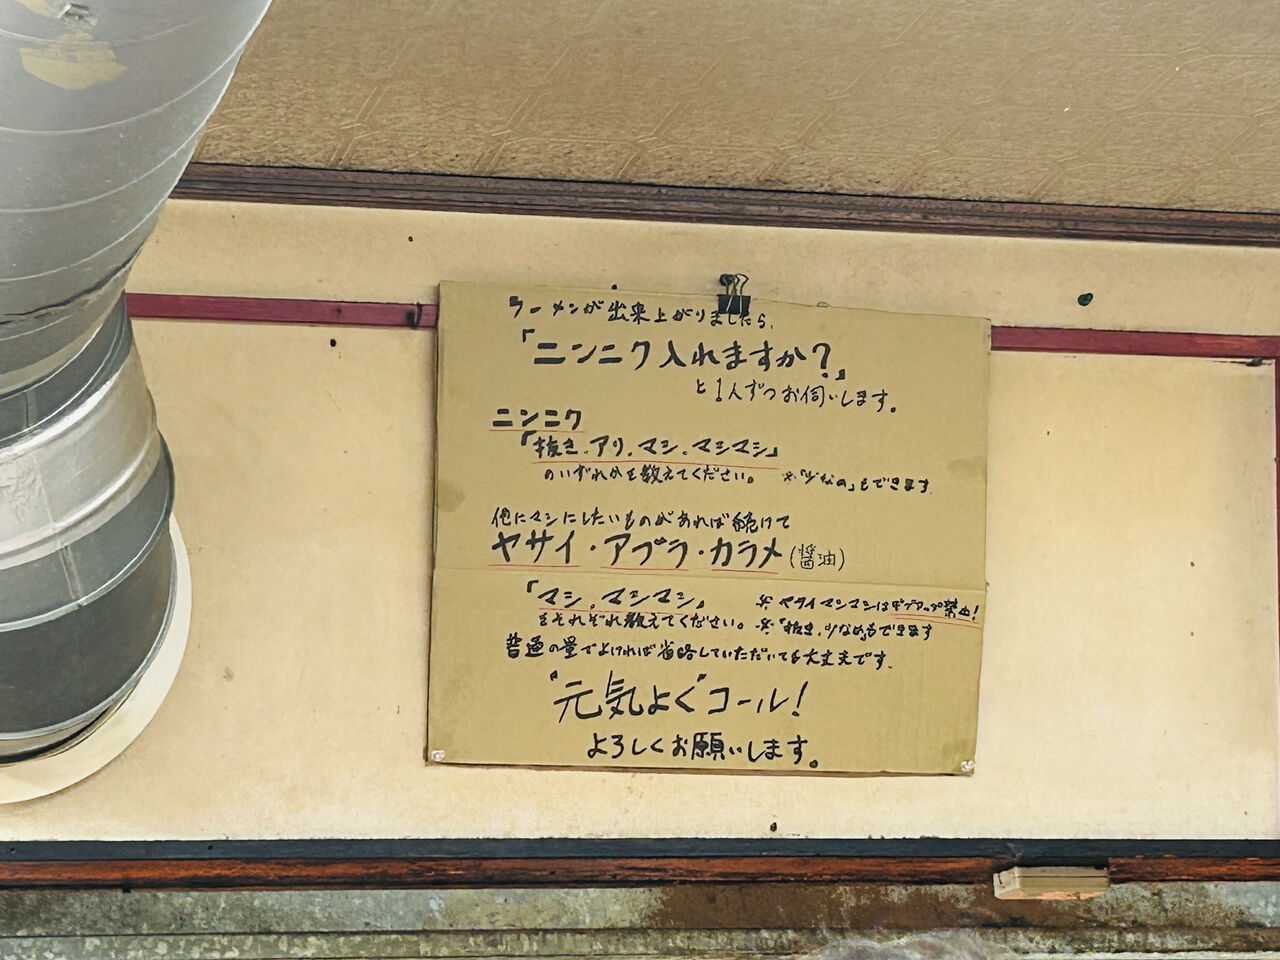 ラーメンが出来上がりましたら、
「ニンニク入れますか？」
と1人ずつお伺いします。
ニンニク
「抜き、アリ、マシ、マシマシ」
のいずれかを教えてください。 ※「少なめ」もできます
他にマシにしたいものがあれば続けて
ヤサイ・アブラ・カラメ(醤油)
「マシ、マシマシ」 ※ヤサイマシマシはギブアップ禁止!
をそれぞれ教えてください。 ※「抜き、少なめ」もできます
普通の量でよければ省略していただいても大丈夫です。
"元気よく"コール!
よろしくお願いします。